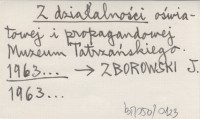 Z działalności oświa-
towej i propagandowej
Muzeum Tatrzańskiego.
1963... → ZBOROWSKI J.
1963...